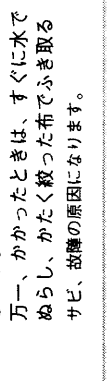 万一、かかったときは、すぐに水で
ぬらし、かたく絞った布でふき取る
サビ、故障の原因になります。